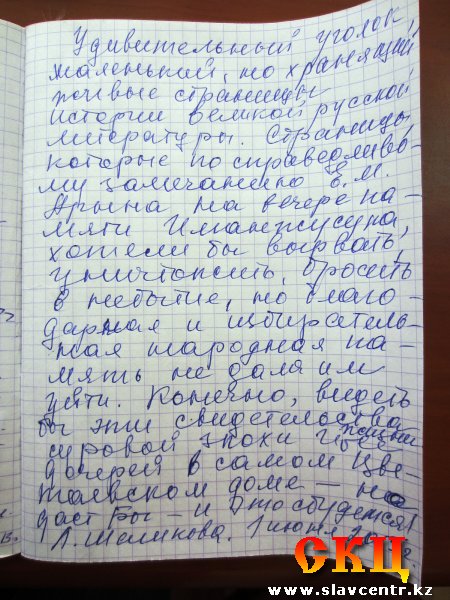 Удивительный уголок,
маленький, но хранящий
живые страницы
истории великой русской
литературы. Страницы,
которые по справедливо-
му замечанию Е.М.
Арына на вечере па-
мяти Иманжусупа,
хотели бы вырвать,
уничтожить, бросить
в небытие, но благо-
дарная и щбиратель-
ная народная па-
мять не дала им
уйти. Конечно, видеть
бы эти свидетельства
суровой эпохи и жизни
дочерей в самом Цве-
таевском доме — но
даст Бы - и это сбудется!
Л. Шеликова. 1 июня
СКЦ
www.slavcentr.kz